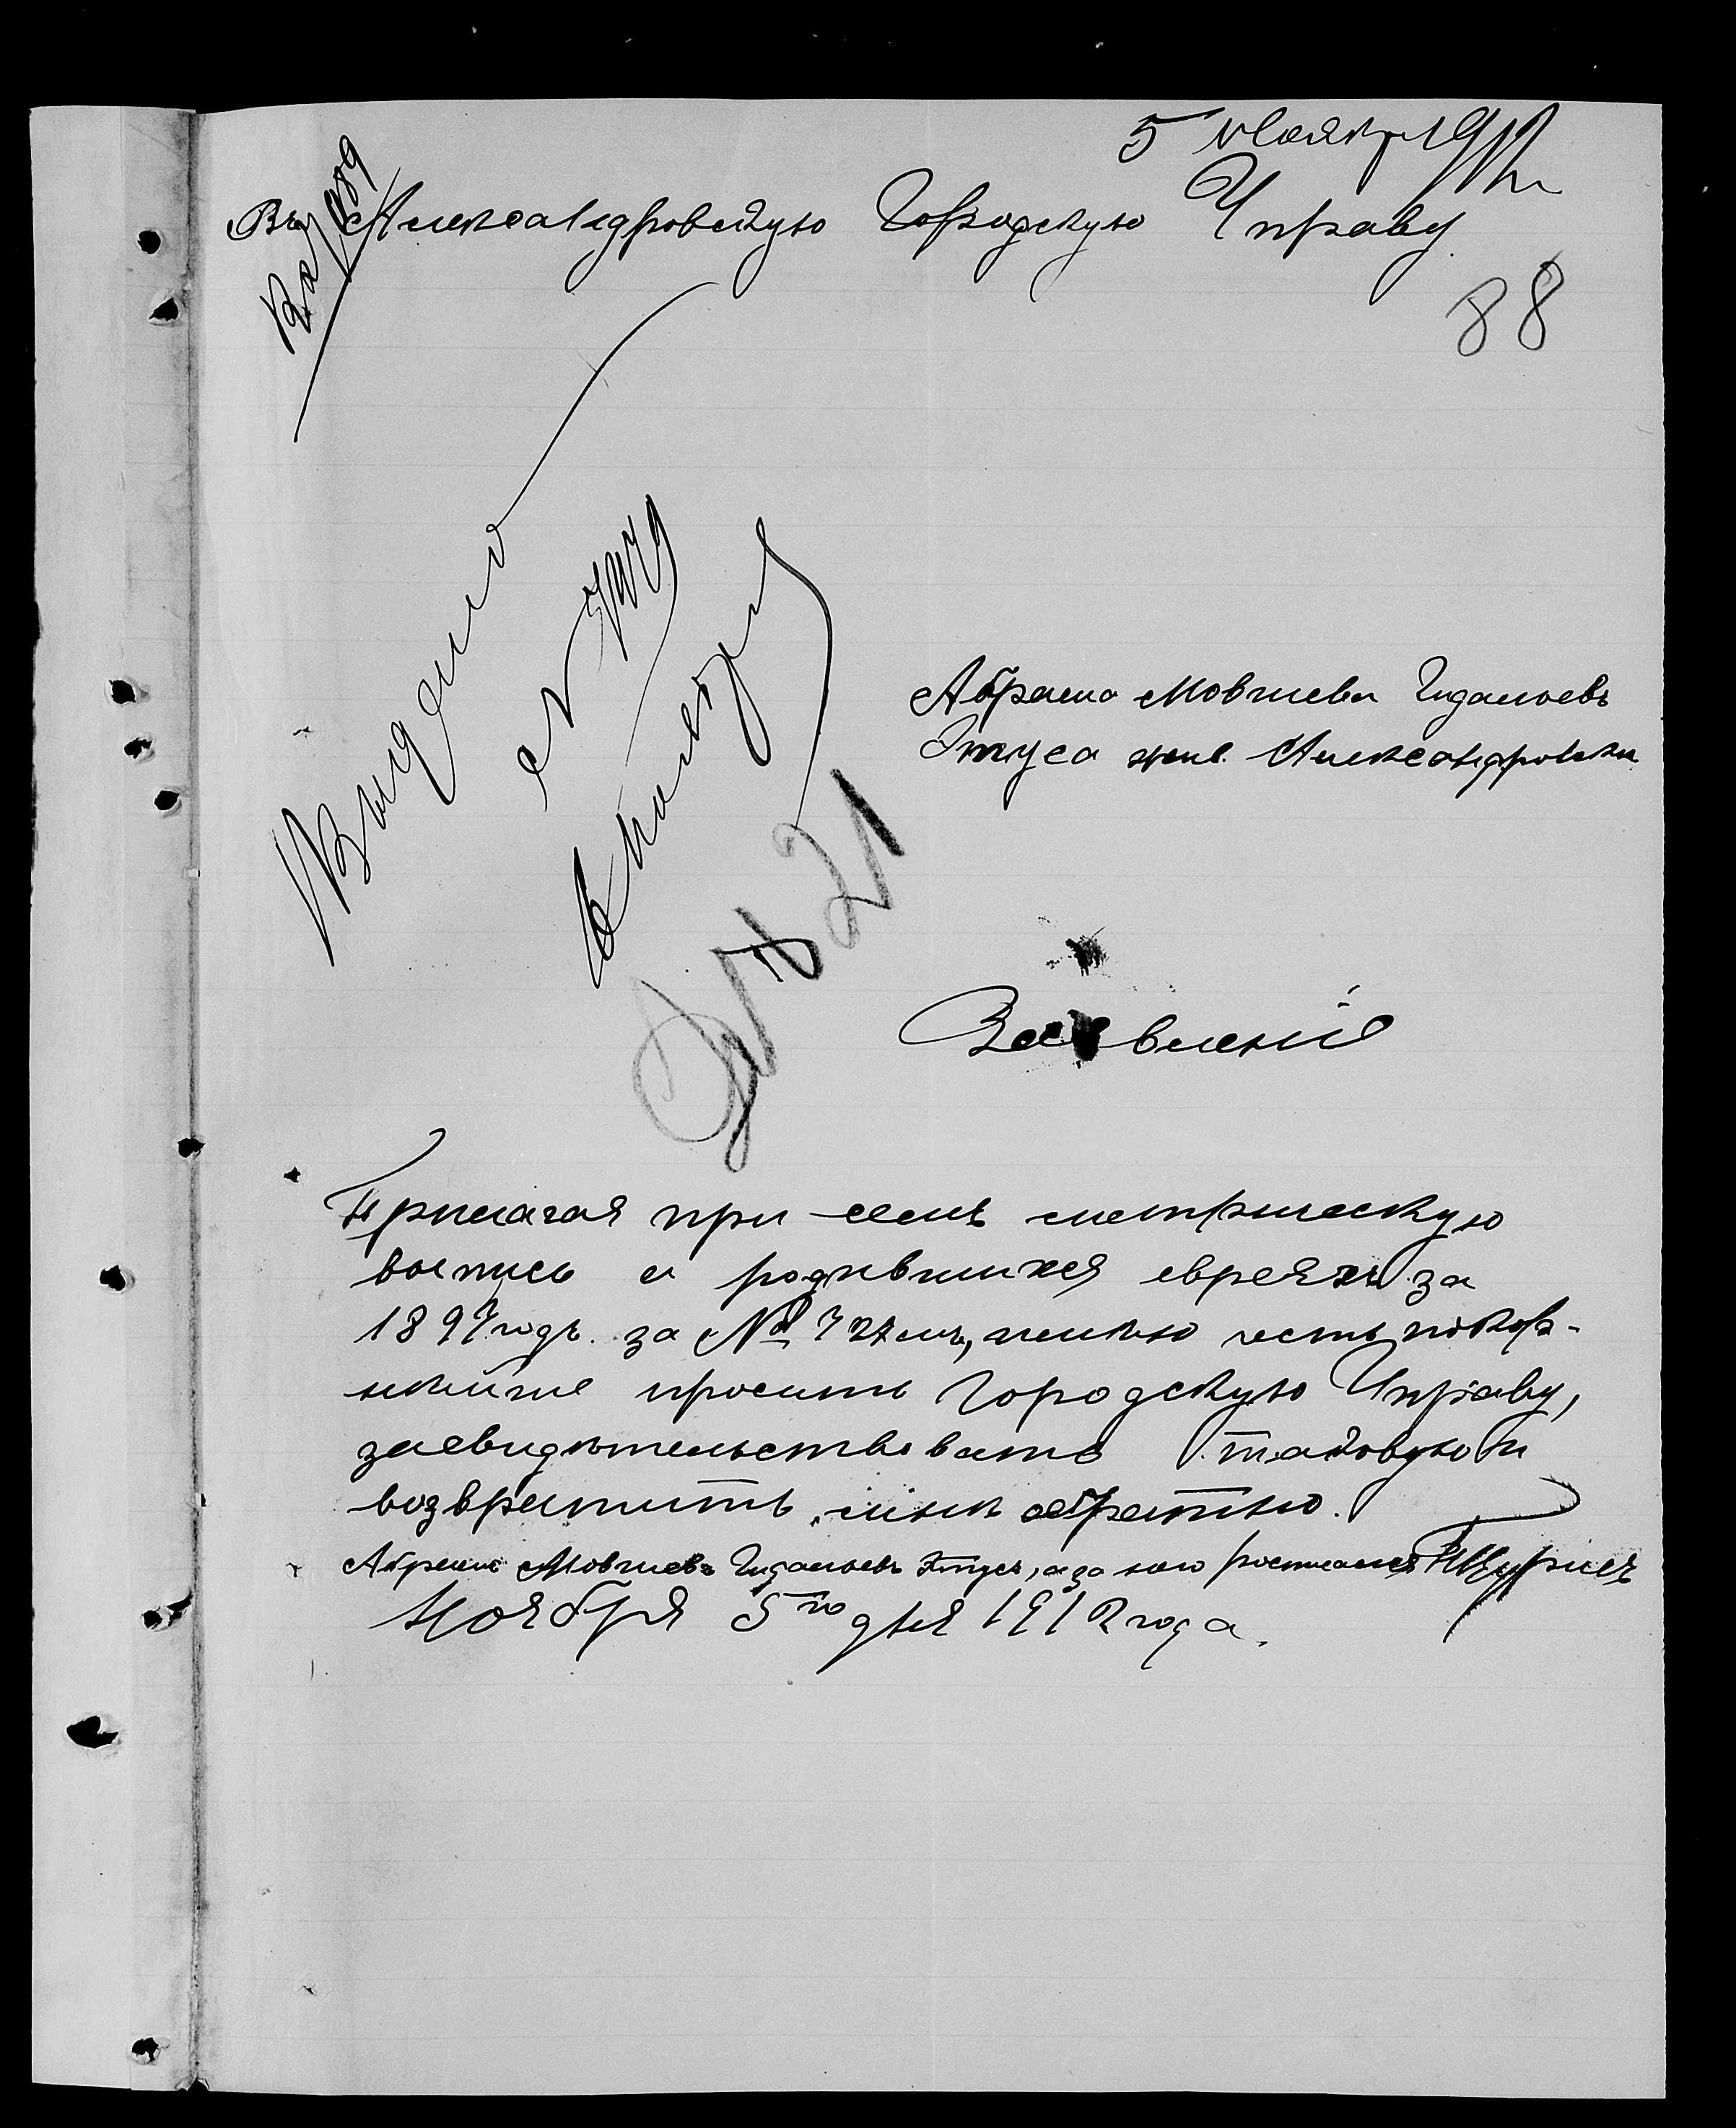 5 Ноября 1912 г.
Въ Александровскую Городскую Управу
88
Абрама Мовшева Гидалоевъ
Этуса жив. Александровскъ
Выдано
21
Заявленіе
Прилагая при семъ метрическую
выпись о родившихся евреяхъ за
1897 годъ. за № 727 мъ, имѣю честь покор-
нѣйше просить Городскую Управу,
засвидѣтельствовать таковую и
возвратить мнѣ обратно.
Абрамъ Мовшевъ Гидалоевъ Этусъ, а за него росписался
Ноября 5го дня 1912 года.